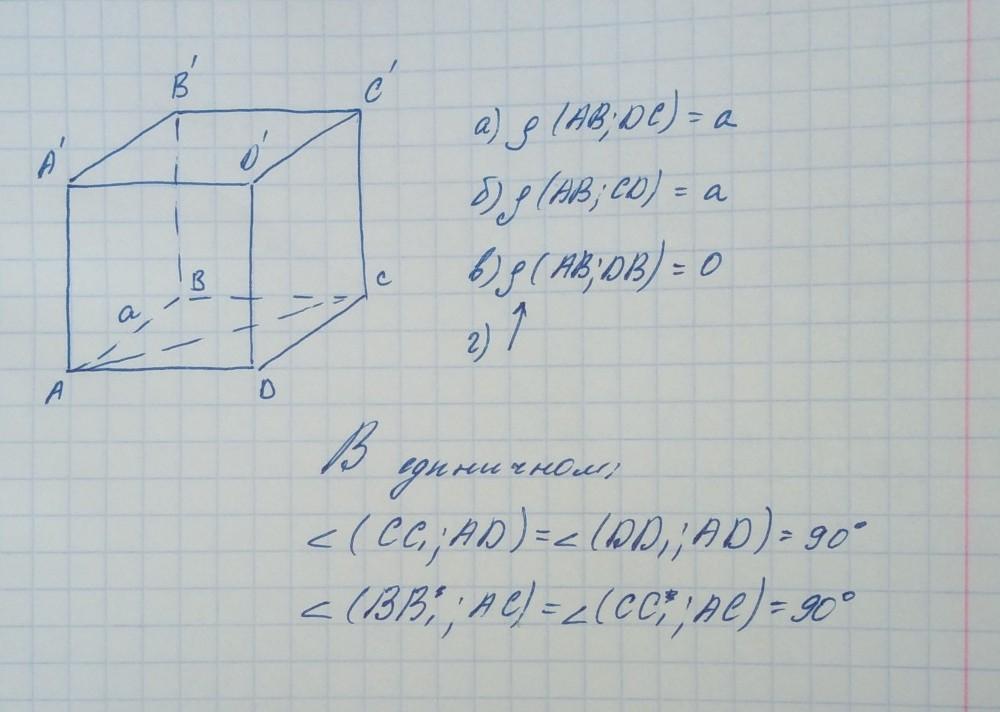 B'
C'
A'
D'
a
B
C
A
D
а) ρ (AB; DC) = a
б) ρ (AB; CD) = a
в) ρ (AB; DB) = 0
г) ↑
В единичном;
∠ (CC₁; AD) = ∠ (DD₁; AD) = 90°
∠ (BB₁; AC) = ∠ (CC₁; AC) = 90°